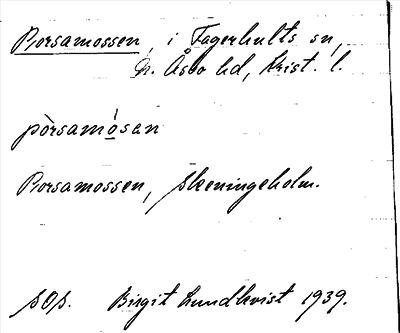 Porsamossen, i Fagerhults sn,
N. Åsbo hd, Krist. l.
pòrsamósan
Porsamossen, Skeningeholm.
sOs. Birgit Lundkvist 1939.